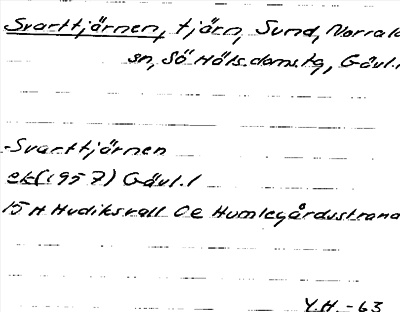 Svarttjärnen, tjärn, Sund, Norrala
sn, Sö Häls. doms.hg, Gävl.
-Svarttjärnen
ek(1957) Gävl.l
15 H Hudiksvall Oe Humlegårdsstrand
Y.H. -63